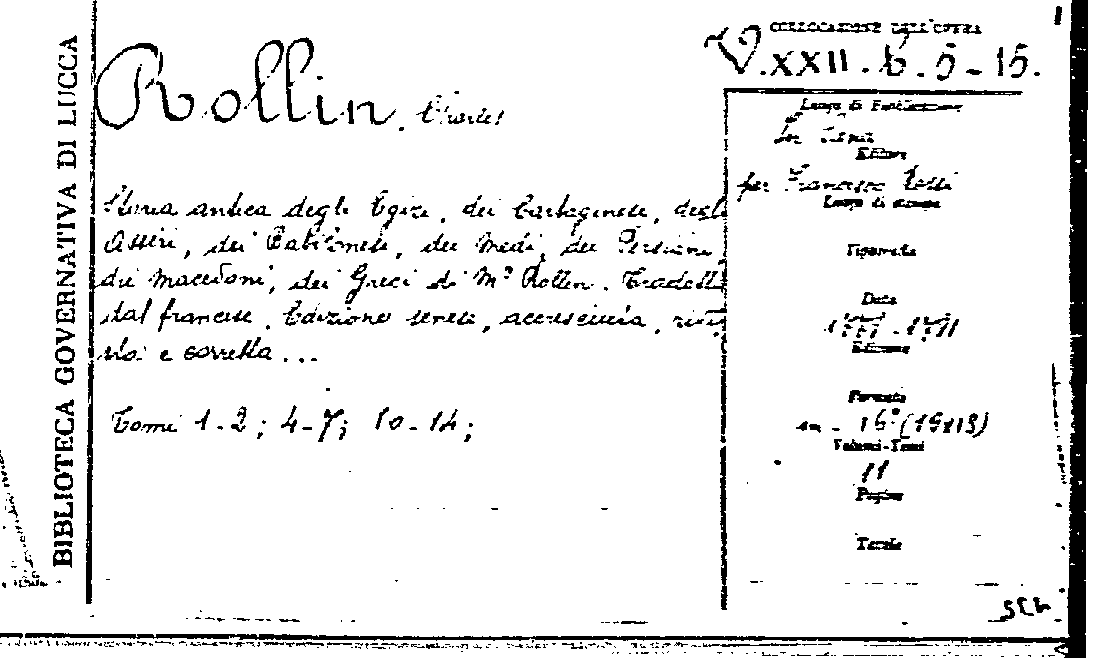 BIBLIOTECA GOVERNATIVA DI LUCCA
Rollin, Charles
Storia antica degli Egizi, dei Cartaginesi, degli
Assiri, dei Babilonesi, dei Medi, dei Persiani,
dei Macedoni, dei Greci di Mr Rollin. Tradotta
dal francese. Edizione senese, accresciuta,
e corretta ...
Tomi 1-2; 4-7; 10-14;
COLLOCAZIONE DELL'OPERA
V.XXII.b.5-15.
Luogo di Pubblicazione
In Siena
Editore
per Francesco Rossi
Luogo di stampa
Tipografia
Data
Edizione
Formato
in-16°(19x13)
Volumi-Tomi
11
Pagine
Tavole